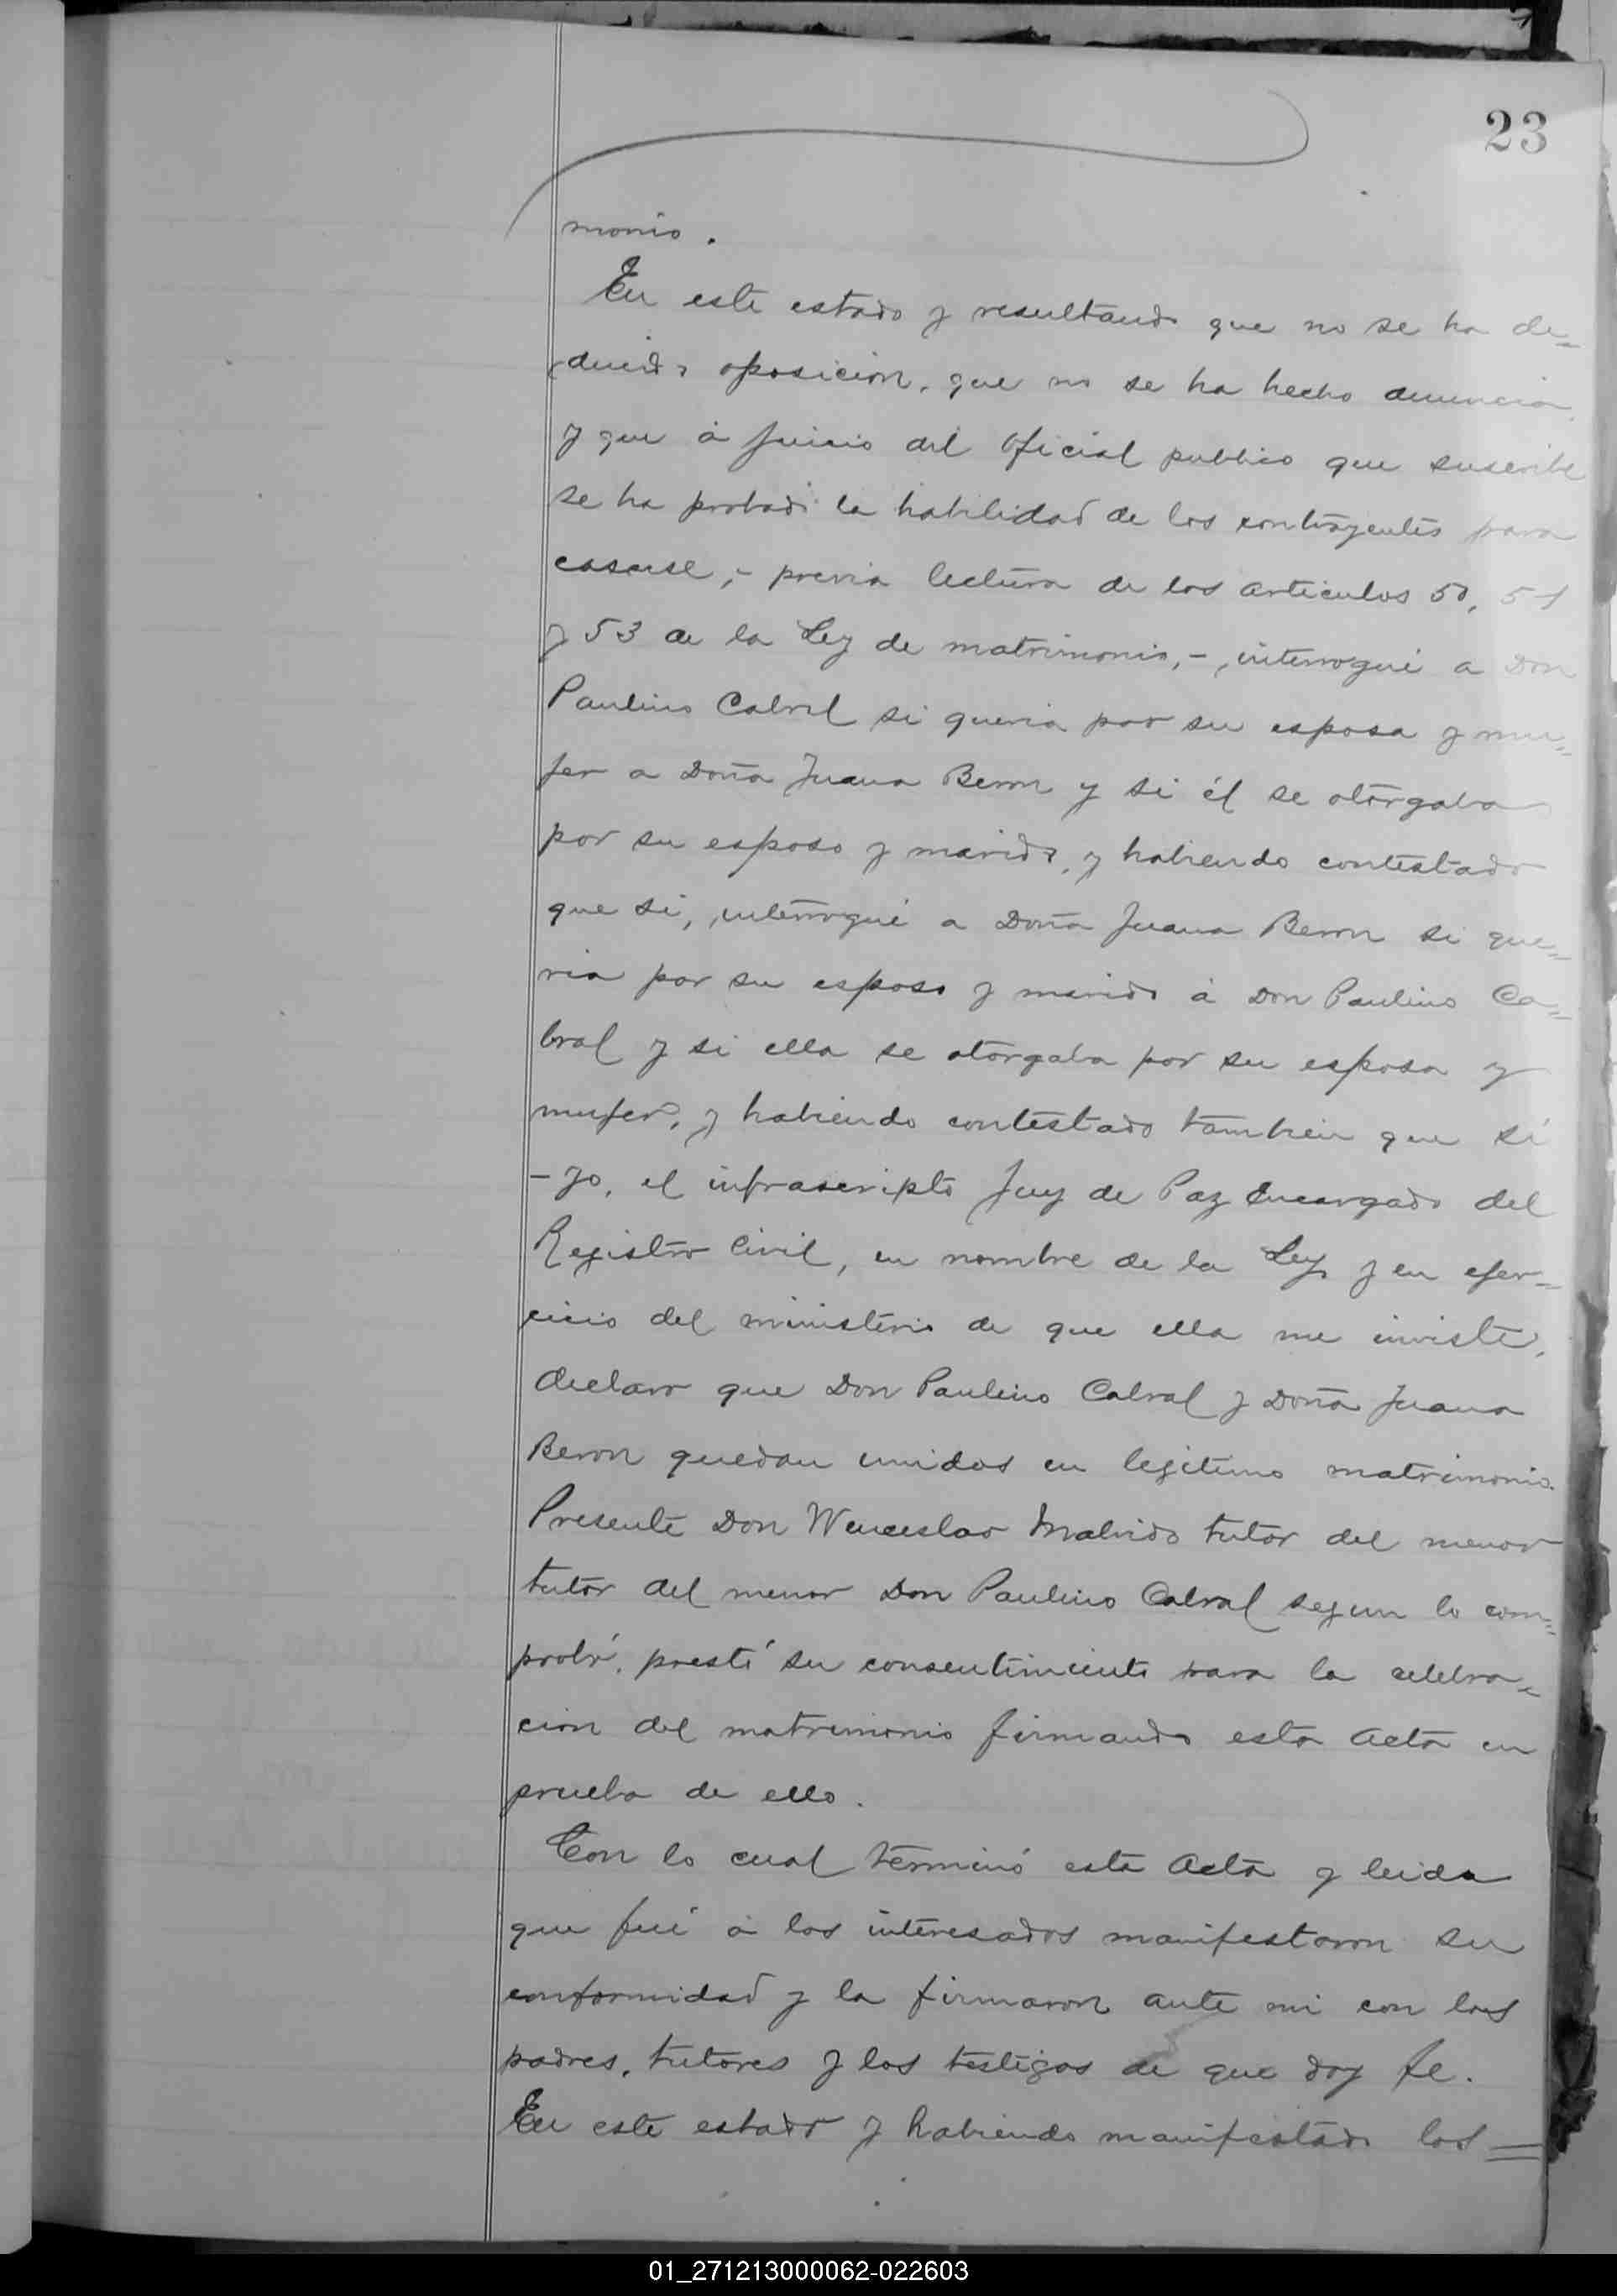 23
monio.
En este estado y resultando que no se ha de=
ducido oposicion, que no se ha hecho denuncia
y que á juicio del oficial publico que suscribe
se ha probado la habilidad de los contrayentes para
casarse,- previa lectura de los articulos 50, 51
y 53 de la Ley de matrimonio,-, interrogué a Don
Paulino Cabral si queria por su esposa y mu=
jer a Doña Juana Beron y si él se otorgaba
por su esposo y marido, y habiendo contestado
que si, interrogué a Doña Juana Beron si que=
ria por su esposo y marido á Don Paulino Ca=
bral y si ella se otorgaba por su esposa y
mujer, y habiendo contestado tambien que si
- yo, el infrascripto Juez de Paz Encargado del
Registro Civil, en nombre de la Ley y en ejer=
cicio del ministerio de que ella me inviste,
declaro que Don Paulino Cabral y Doña Juana
Beron quedan unidos en legitimo matrimonio.
Presente Don Wenceslao Malvido tutor del menor
tutor del menor Don Paulino Cabral segun lo com=
probó, prestó su consentimiento para la celebra=
cion del matrimonio firmando esta acta en
prueba de ello.
Con lo cual terminó esta acta y leida
que fué á los interesados manifestaron su
conformidad y la firmaron ante mi con los
padres, tutores y los testigos de que doy fe.
En este estado y habiendo manifestado los =
01_271213000062-022603